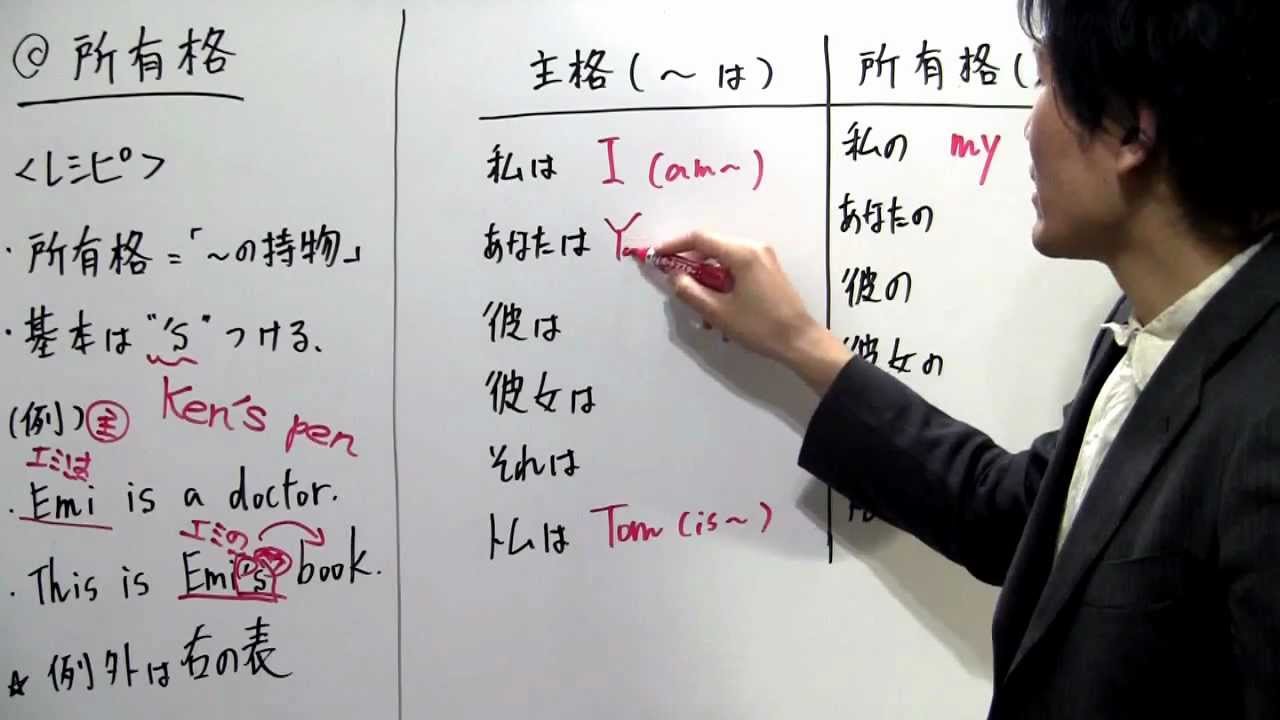 ◎ 所有格
<レシピ>
・所有格=「~の持物」
・基本は"'s"つける、
(例) 主 Ken's pen
エミは
・Emi is a doctor.
エミの
・This is Emi's book.
☆ 例外は右の表
主格(~は) 所有格(
私は I (am~) 私の my
あなたは Y あなたの
彼は 彼の
彼女は 彼女の
それは
トムは Tom (is~)